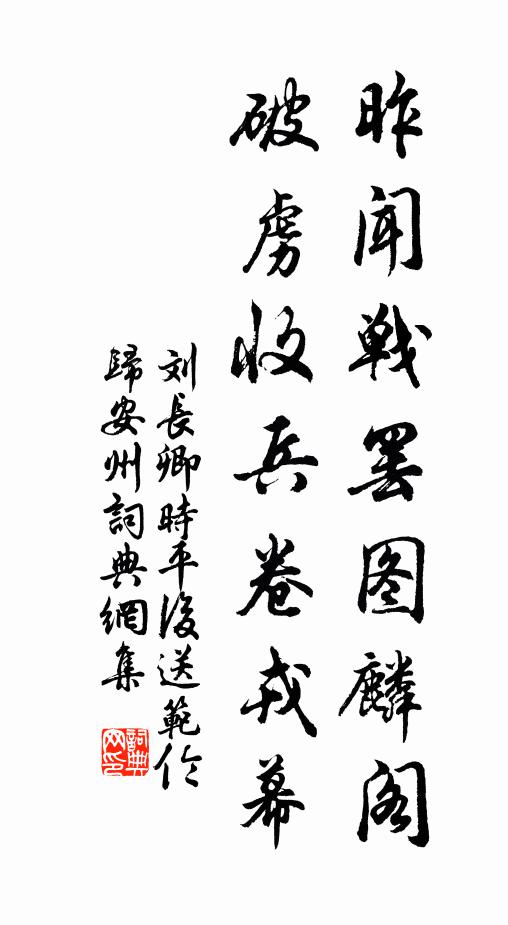 昨闻戦罢图麟阁
破虏收兵卷戎幕
刘長卿時平後送範伦
歸安州詞典網集
詞典网印